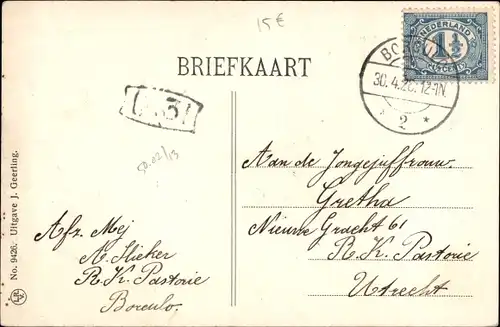 15€
NEDERLAND
1½
BRIEFKAART
30.4.20.12-1N.
2 *
50.02/13
Aan de Jongejuffrouw.
Gretha
Nieuwe Gracht 61
R. K. Pastorie
Utrecht
Afz. Mej
A Slieker
R. K. Pastorie
Borculo.
No. 9426. Uitgave J. Geerling.